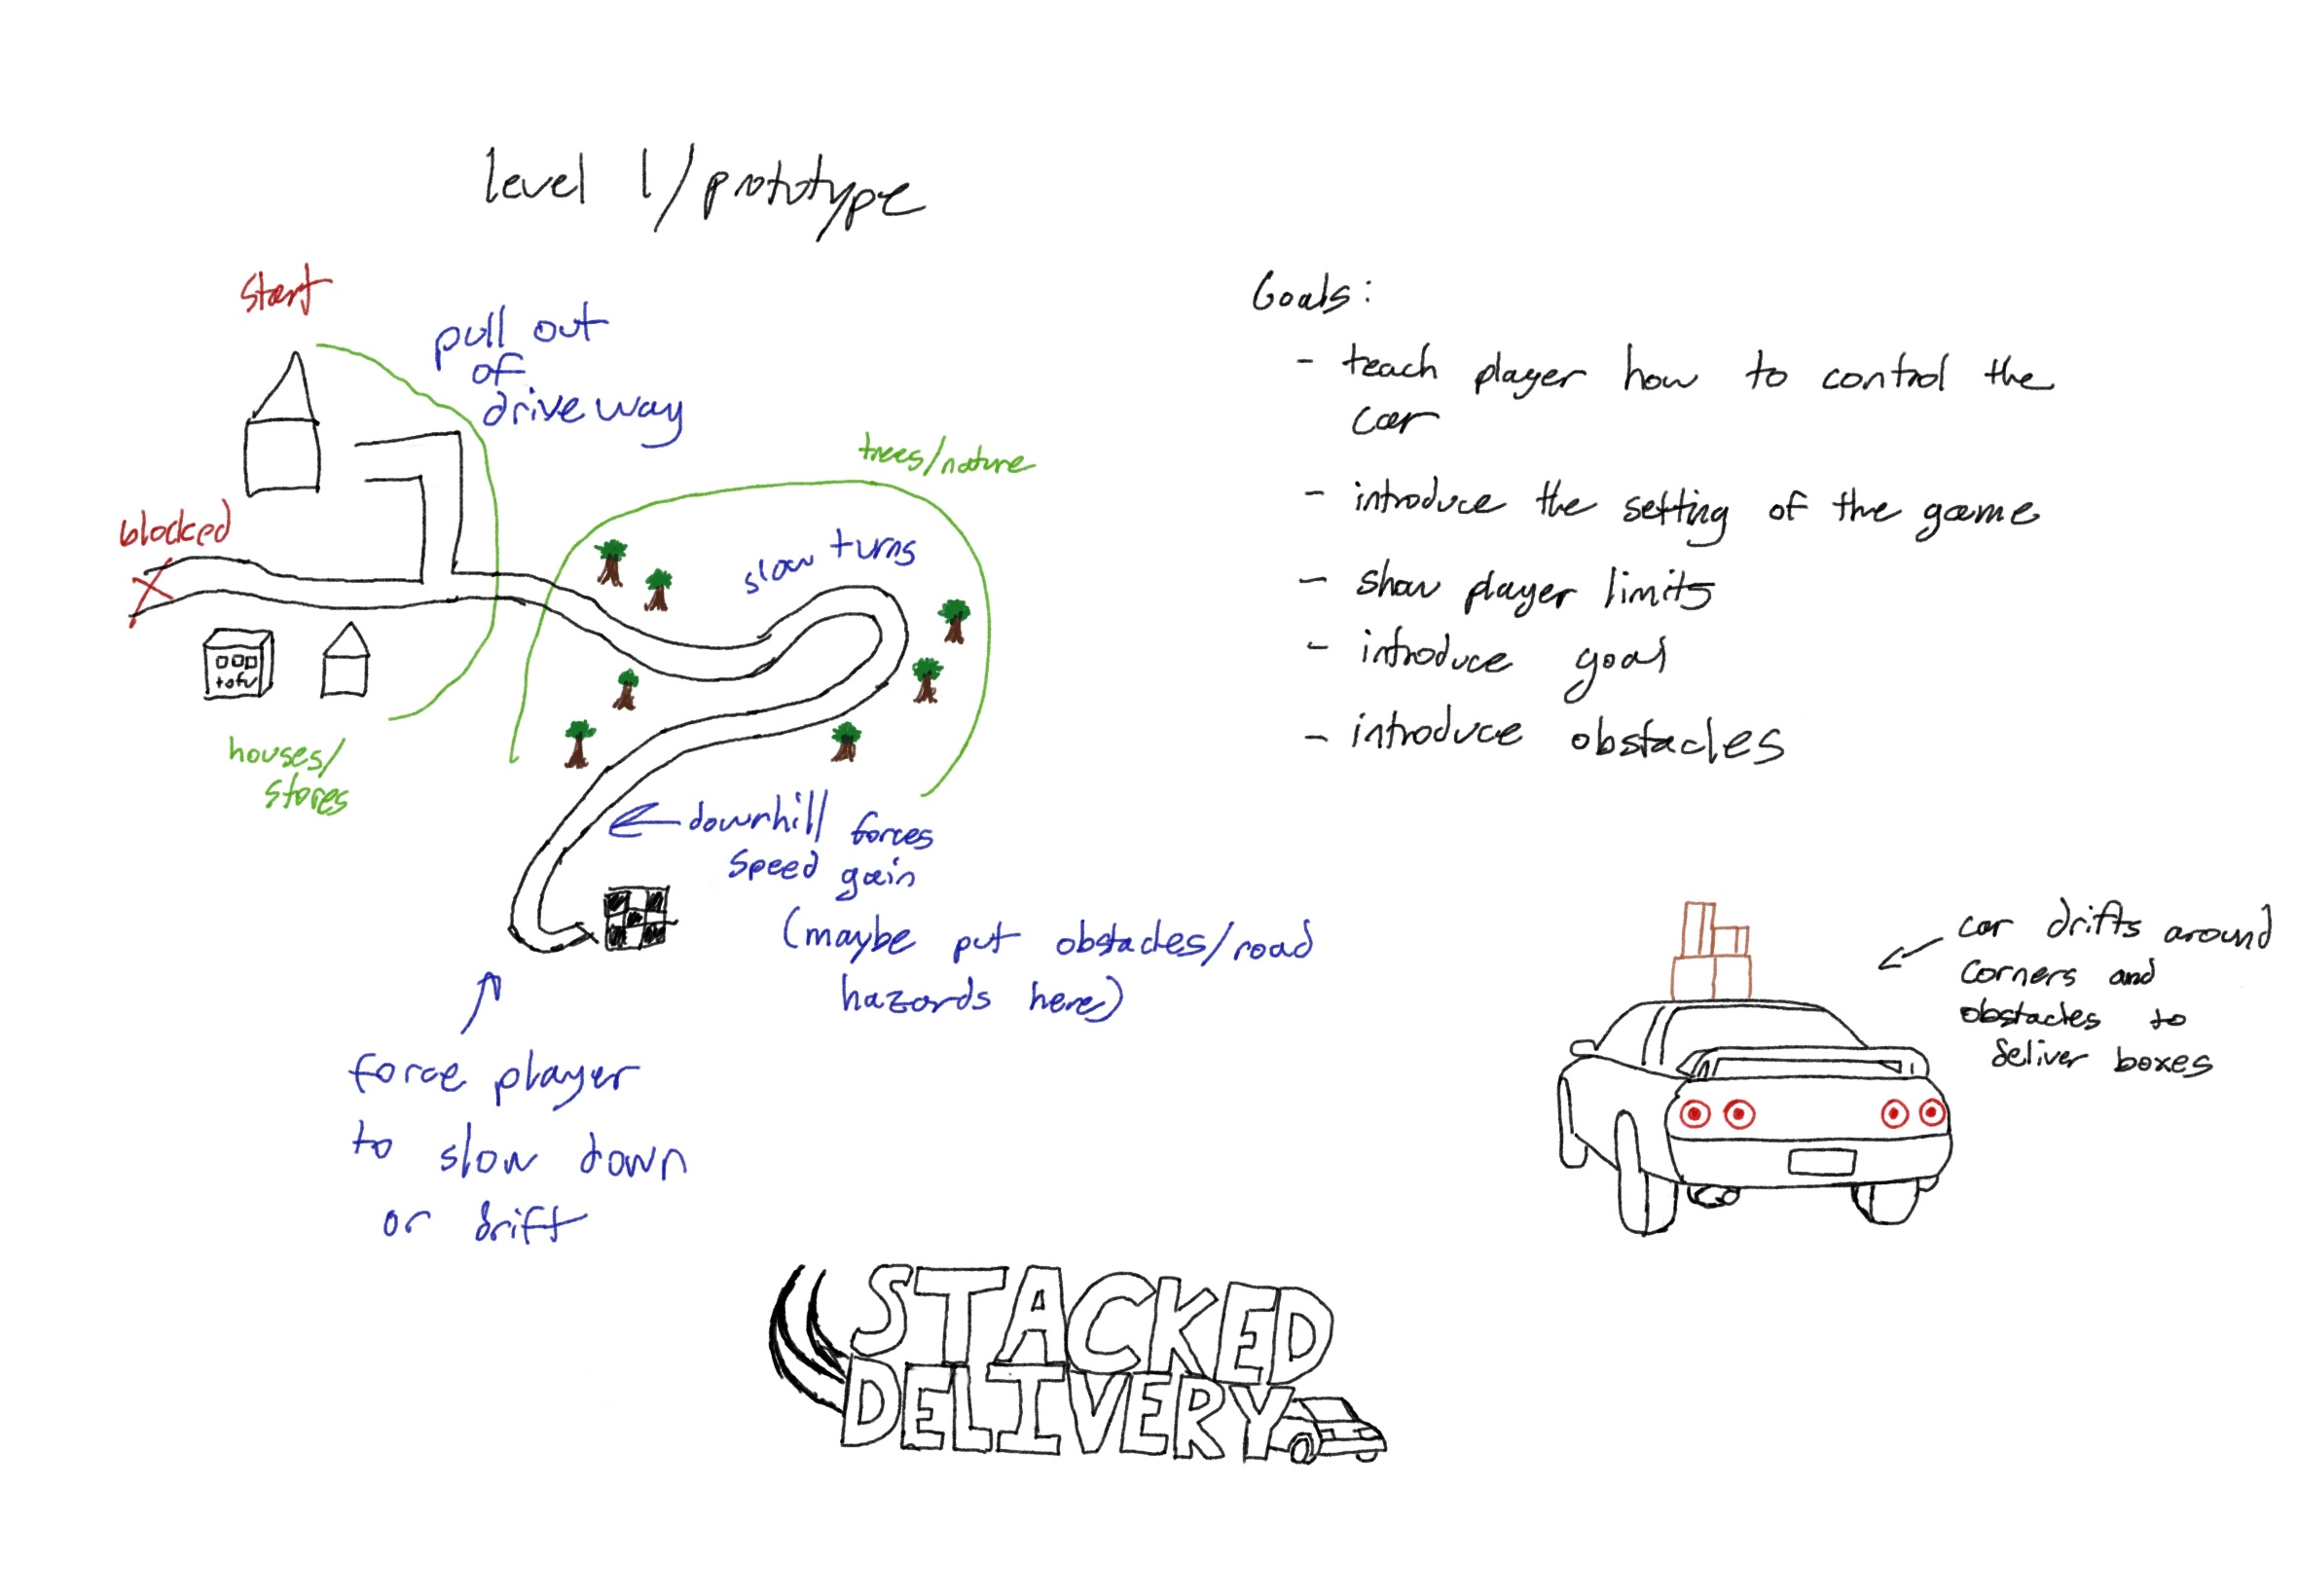 level 1/prototype
start
pull out
of
driveway
blocked
tofu
houses/
stores
trees/nature
slow turns
← downhill forces
speed gain
(maybe put obstacles/road
hazards here)
force player
to slow down
or drift
Goals:
- teach player how to control the
car
- introduce the setting of the game
- show player limits
- introduce goal
- introduce obstacles
car drifts around
corners and
obstacles to
deliver boxes
STACKED
DELIVERY